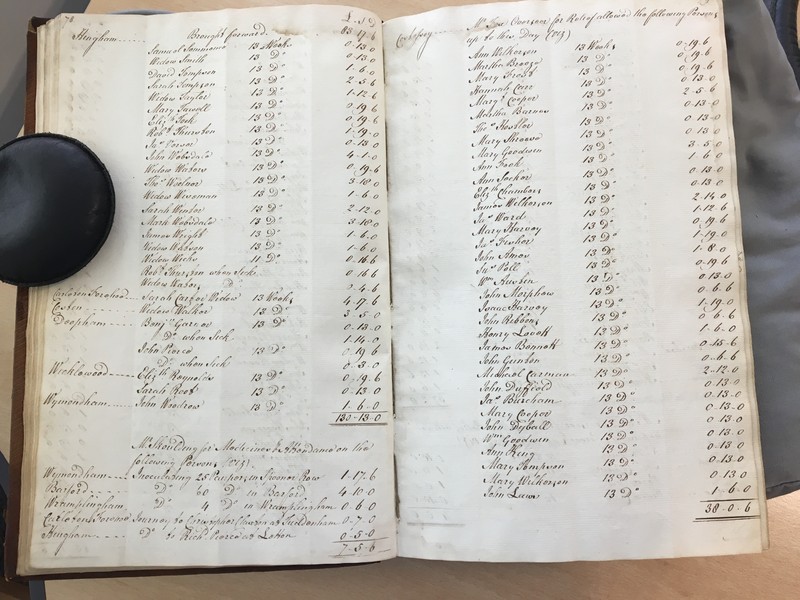 78
£ S D
Hingham Brought forward 83 17 6
Samuel Sammons 13 Weeks 0 13 0
Widow Smith 13 Do 0 13 0
David Tompson 13 Do 1 6 0
Sarah Tompson 13 Do 2 5 6
Widow Taylor 13 Do 1 12 6
Mary Farwell 13 Do 0 19 6
Elizth 13 Do 0 19 6
Robt Thurston 13 Do 1 19 0
13 Do 0 13 0
John Wabsdale 13 Do 4 1 0
Widow Waters 13 Do 0 19 6
Thos 13 Do 3 10 0
Widow Wiseman 13 Do 1 6 0
Sarah Winter 13 Do 2 12 0
Mark Wabsdale 13 Do 3 18 0
James Wright 13 Do 1 6 0
Widow Watson 13 Do 1 6 0
Widow Wicks 11 Do 0 16 6
Robt Thurston when Sick 0 16 6
Widow Waters Do 0 4 6
Carleton Forehoe Sarah Carter Widow 13 Weeks 4 17 6
Costen Widow Walker 13 Do 3 5 0
Deopham Benj Garner 13 Do 0 13 0
Do when Sick 1 14 0
John Pierce 13 Do 0 19 6
Do when Sick 0 3 0
Wicklewood Elizth Reynolds 13 Do 0 19 6
Sarah Root 13 Do 0 13 0
Wymondham John Woodrow 13 Do 1 6 0
130 13 0
Mr Skoulding for Medicines & Attendance on the
following Persons (Viz)
Wymondham Inoculating 25 Paupers, in Row 1 17 6
Barford Do 60 Do in Barford 4 10 0
Wramplingham Do 4 Do in Wramplingham 0 6 0
Carleton Forehoe Journey to at Tuddenham 0 7 0
Hingham Do to Richd Pierce at Letton 0 5 0
7 5 6
Costessey Mr Overseer for Relief allowed the following Persons
up to this Day (Viz)
Ann Wilkerson 13 Weeks 0 19 6
Martha Breeze 13 Do 0 19 6
Mary Frost 13 Do 0 19 6
Hannah Carr 13 Do 0 13 0
Mary Cooper 13 Do 2 5 6
Martha Barnes 13 Do 0 13 0
Thos Hostler 13 Do 0 13 0
Mary 13 Do 0 13 0
Mary Goodwin 13 Do 3 5 0
Ann Cook 13 Do 1 6 0
Ann 13 Do 0 13 0
Elizth Chambers 13 Do 0 13 0
James Wilkerson 13 Do 2 14 0
Jas Ward 13 Do 1 12 6
Mary Harvey 13 Do 0 19 6
Jas Fisher 13 Do 1 19 0
John Amos 13 Do 1 8 0
Jas Poll 13 Do 0 19 6
Wm Austen 13 Do 0 13 0
John Morphew 13 Do 0 6 6
Isaac Harvey 13 Do 1 19 0
John Ribbons 13 Do 0 6 6
Henry Lovett 13 Do 1 6 0
James Bennett 13 Do 0 15 6
John Gunton 13 Do 0 6 6
Michael Carman 13 Do 2 12 0
John Duffield 13 Do 0 13 0
Jas Bircham 13 Do 0 13 0
Mary Cooper 13 Do 0 13 0
John Dyball 13 Do 0 13 0
Wm Goodwin 13 Do 0 13 0
Ann King 13 Do 0 13 0
Mary Tompson 13 Do 0 13 0
Mary Wilkerson 13 Do 0 13 0
John Laws 13 Do 1 6 0
38 0 6